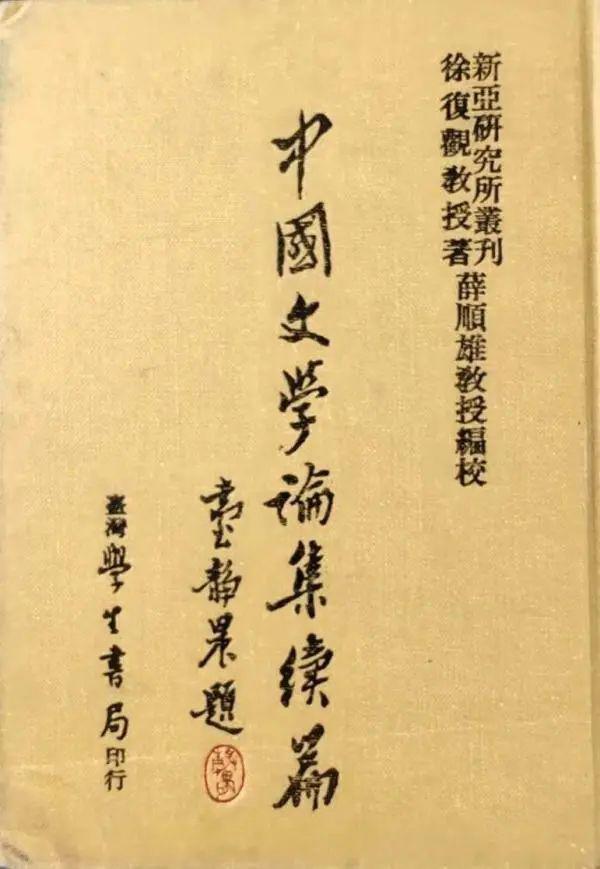 新亞研究所叢刊
徐復觀教授著
薛順雄教授編校
中國文學論集續篇
臺靜農題
臺灣學生書局印行